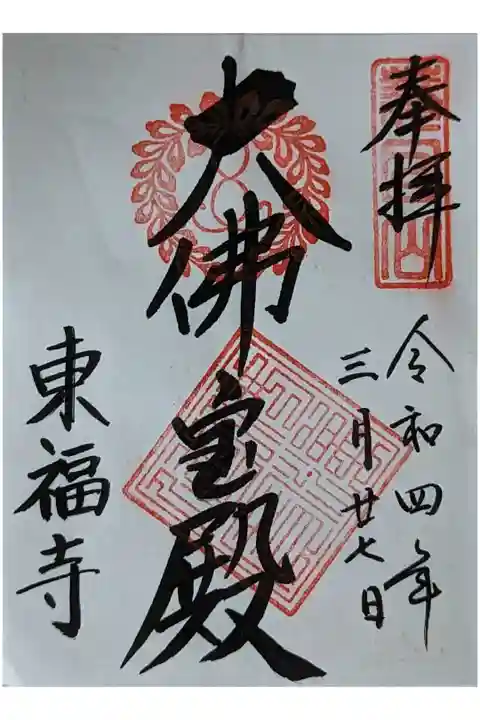 奉拝
令和四年
三月廿七日
大佛宝殿
東福寺